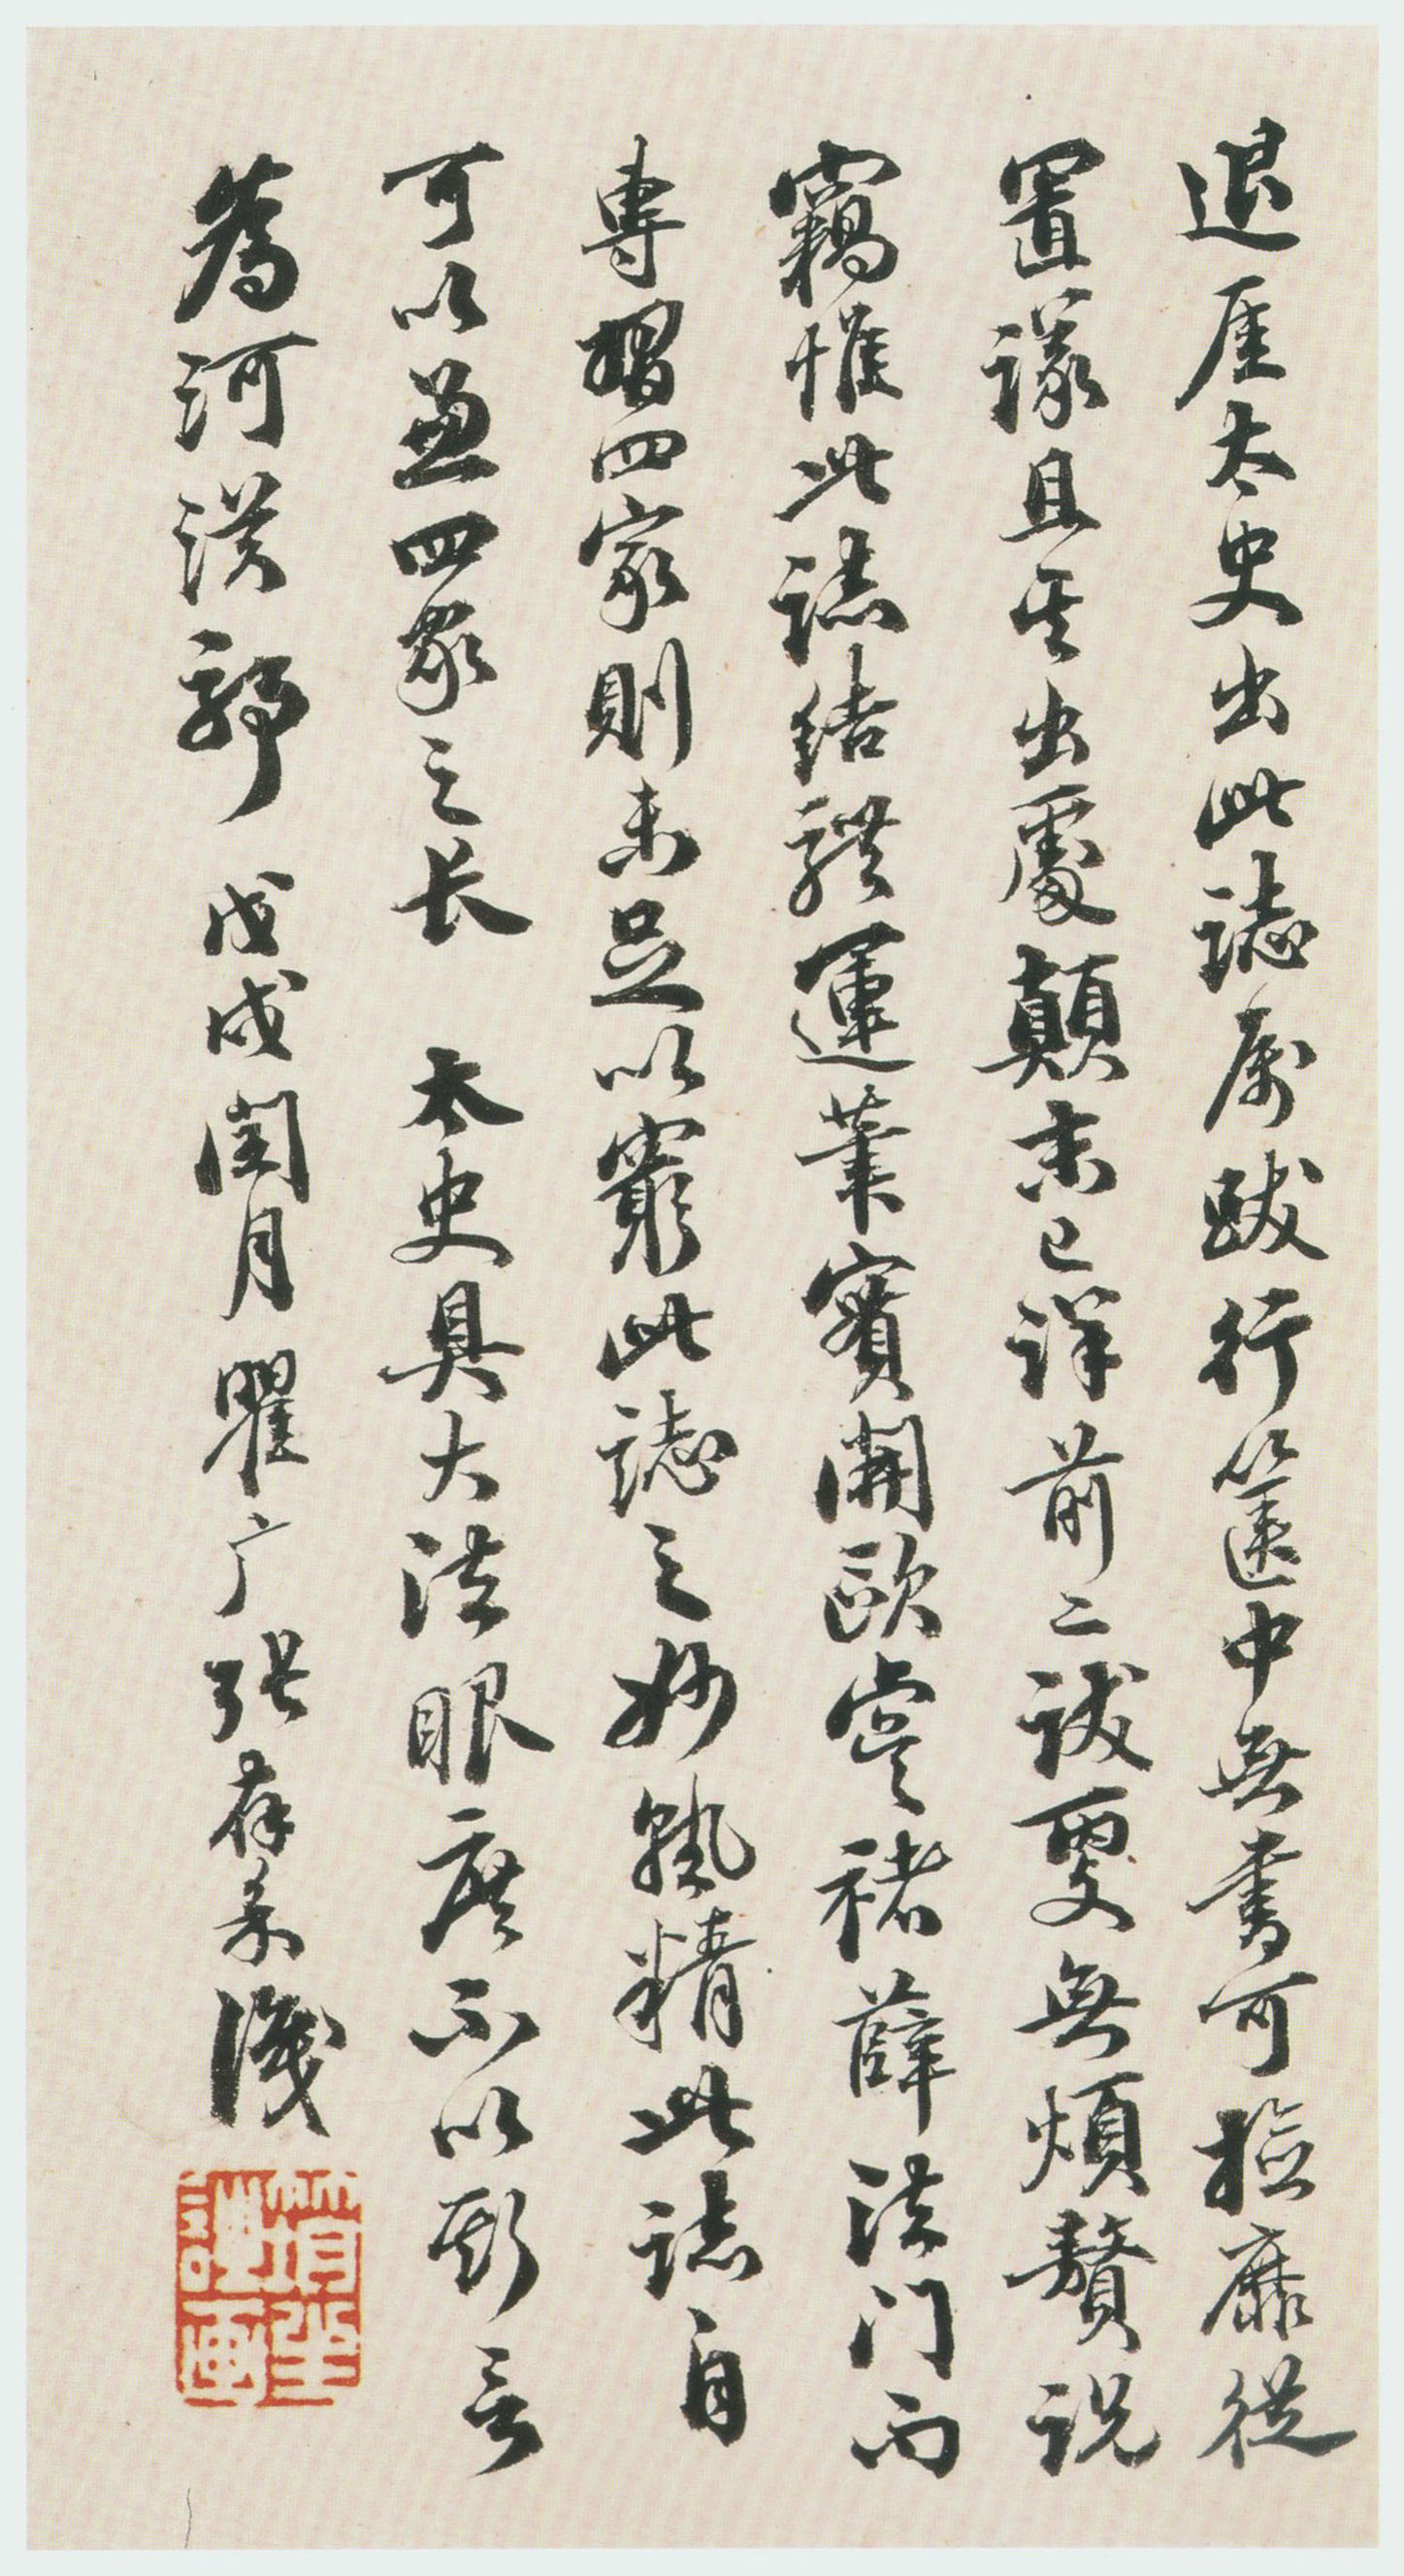 退厓太史出此誌属跋行篋中無書可撿靡從
置議且其出處顛末已詳前二跋更無煩贅説
竊惟此誌結體運筆實開歐虞褚薛法门而
專摺四家則未足以窮此誌之妙孰精此誌自
可以兼四家之长 太史具大法眼庶不以斯言
為河漢歟 戊戌閏月瞿广张存
識